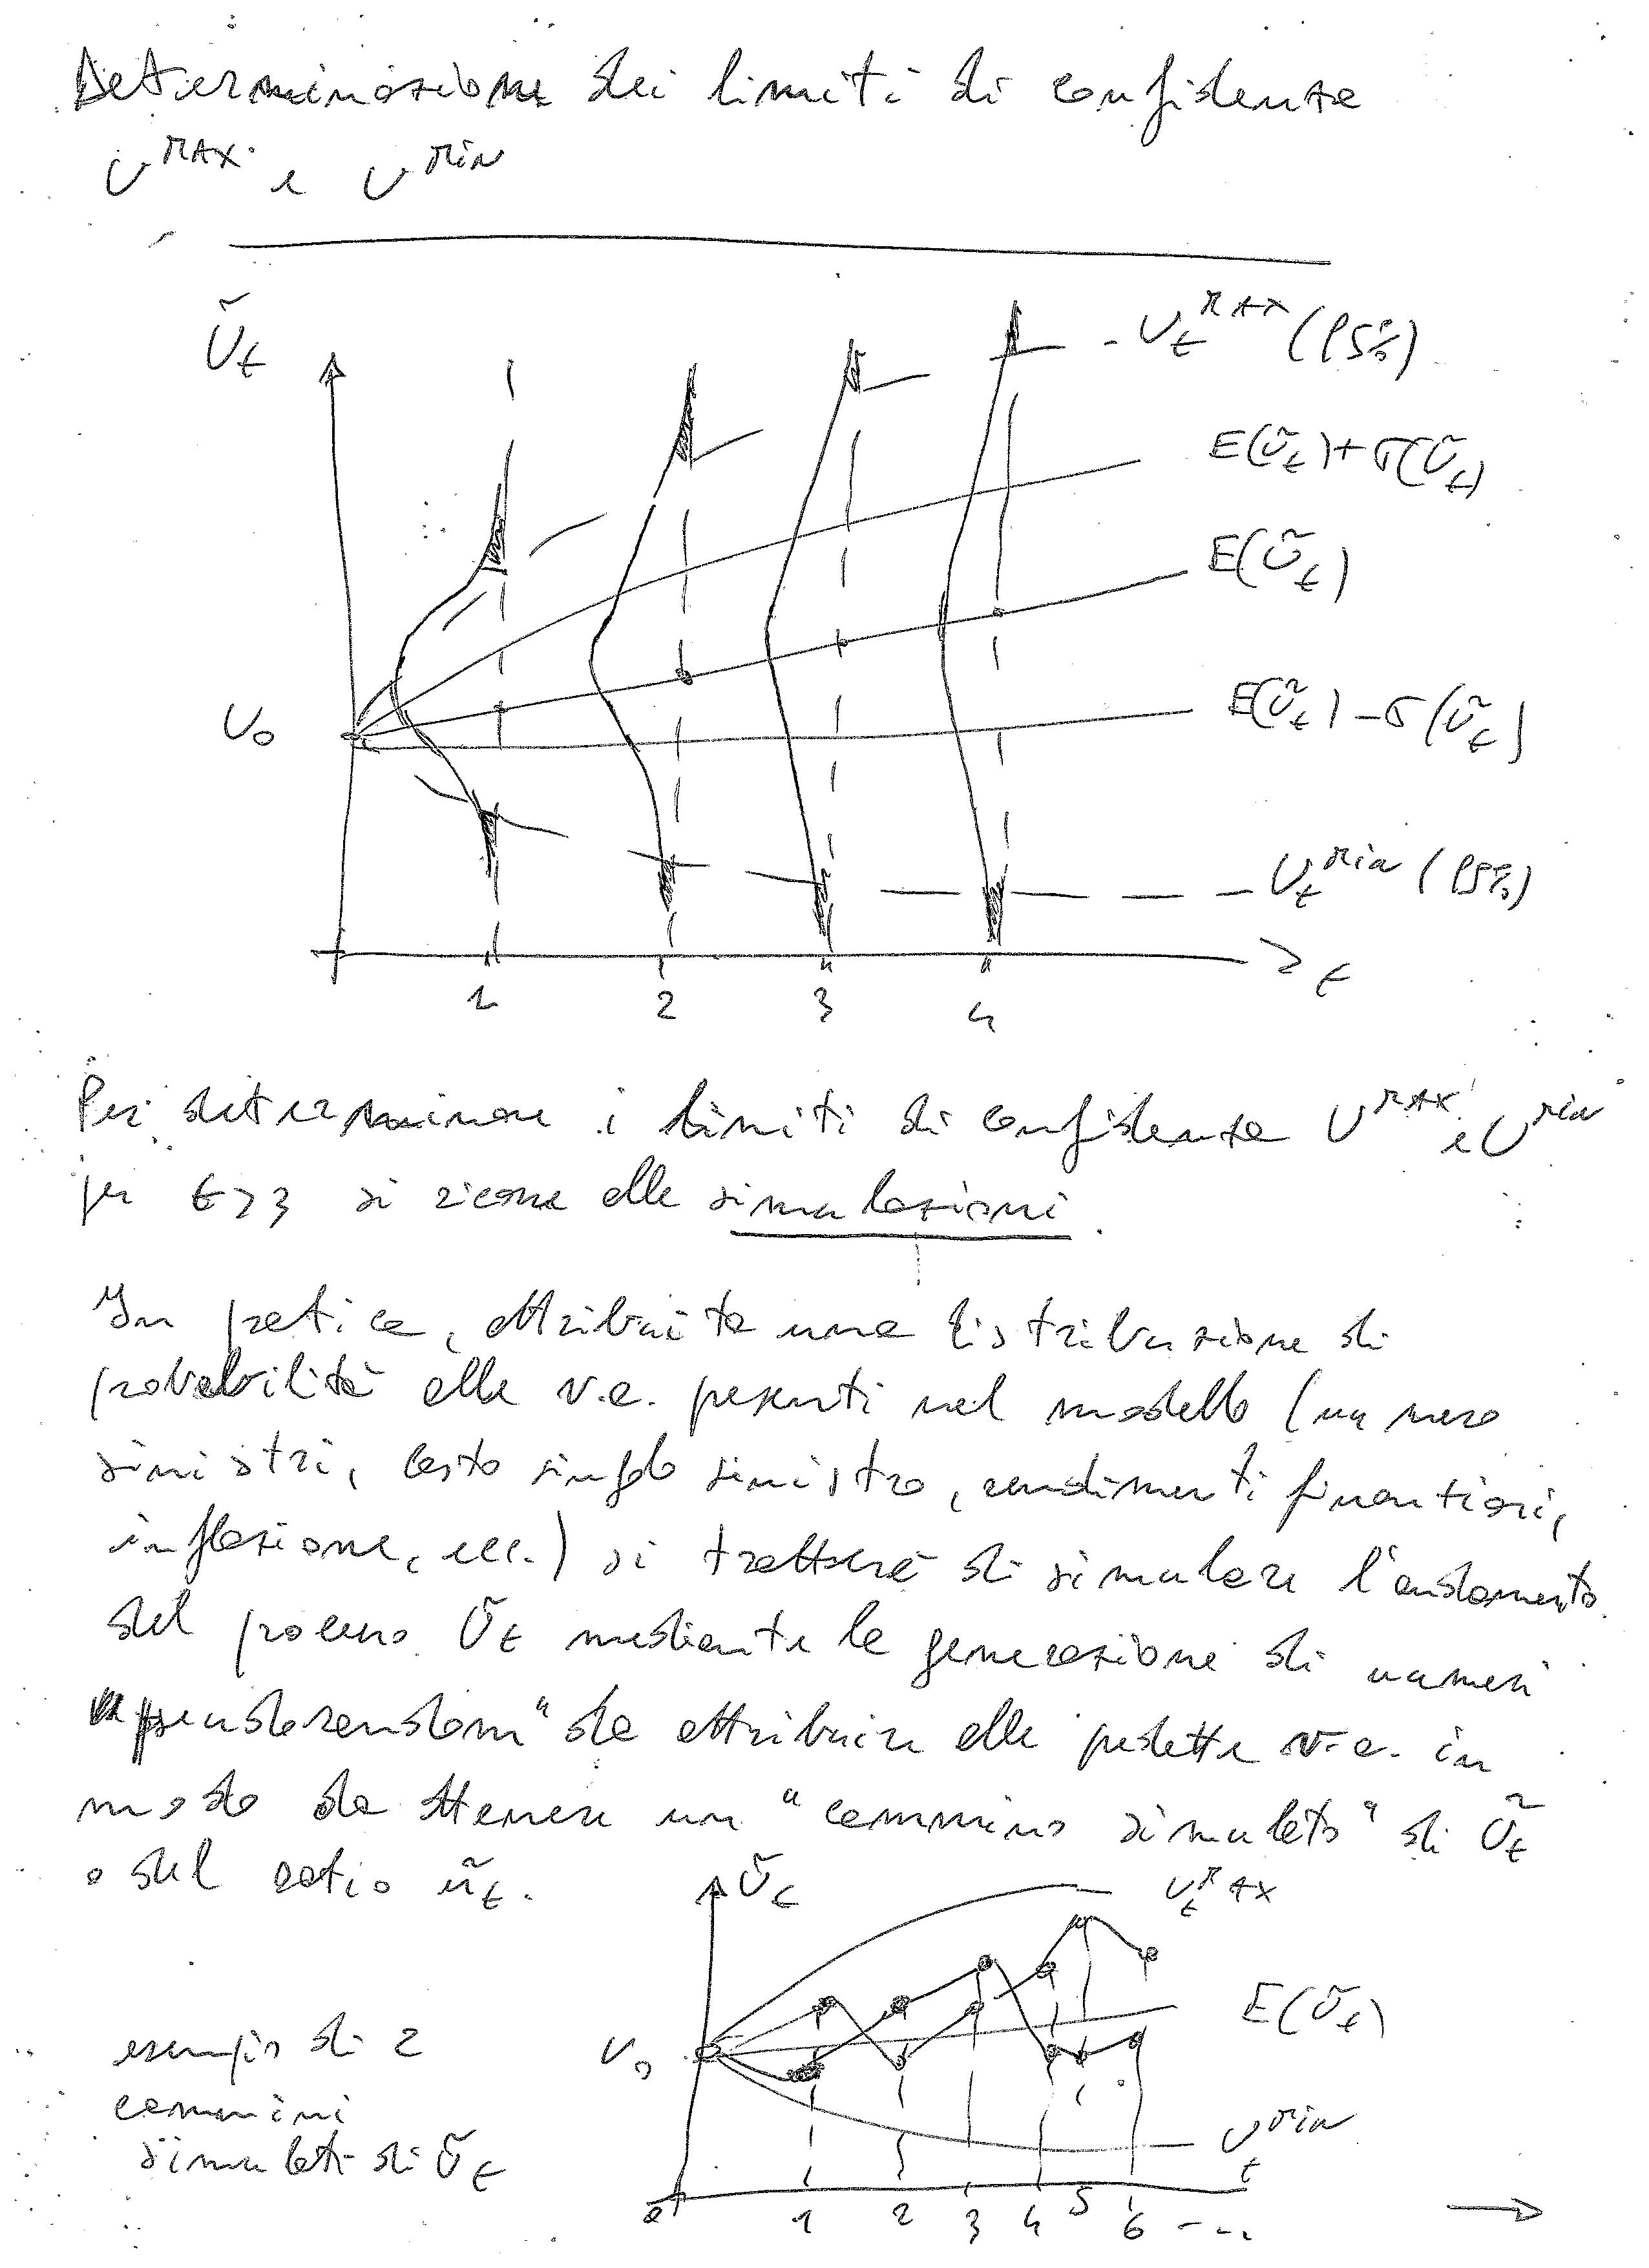 Determinazione dei limiti di confidenza
U^MAX e U^MIN
Ũt
Ut^MAX (95%)
E(Ũt)+σ(Ũt)
E(Ũt)
U0
E(Ũt)-σ(Ũt)
Ut^Min (95%)
1 2 3 4 t
Per determinare i limiti di confidenza U^MAX e U^Min
per t>3 si ricorre alle simulazioni.
In pratica, attribuita una distribuzione di
probabilità alle v.a. presenti nel modello (numero
sinistri, costo singolo sinistro, rendimenti finanziari,
inflazione, ecc.) si tratterà di simulare l'andamento
del processo Ũt mediante la generazione di numeri
"pseudorandom" da attribuire alle predette v.a. in
modo da ottenere un "cammino simulato" di Ũt
o del ratio ũt.
Ũt
Ut^MAX
E(Ũt)
esempio di 2
cammini
simulati di Ũt
U0
U^Min
t
0 1 2 3 4 5 6 ...